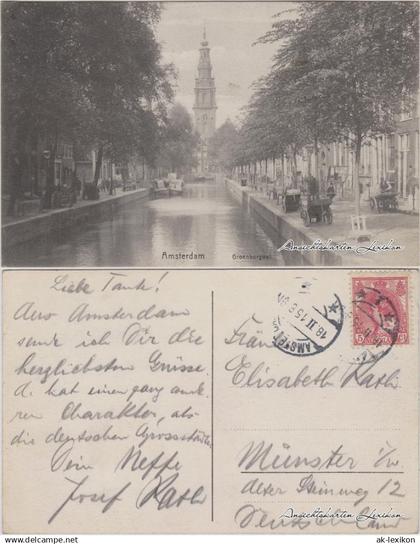 Amsterdam Groenburgwal
Ansichtskarten Lexikon
Liebe Tante!
Aus Amsterdam
sende ich Dir die
herzlichsten Grüsse.
A. hat einen ganz ande-
ren Charakter, als
die deutschen Grossstädte.
Dein Neffe
Josef Kath
AMSTER
18.II.15.8
5
Fräu
Elisabeth Kath
Münster i/w.
alter Steinweg 12
Deutschland
Ansichtskarten Lexikon
TM bildpostkarten.com
© ak-lexikon